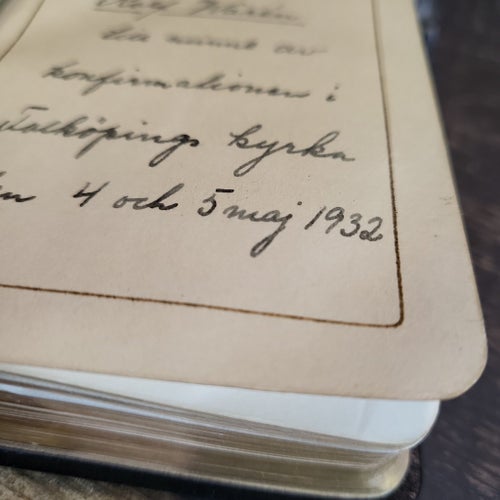 till minne av
konfirmationen i
Falköpings kyrka
den 4 och 5 maj 1932